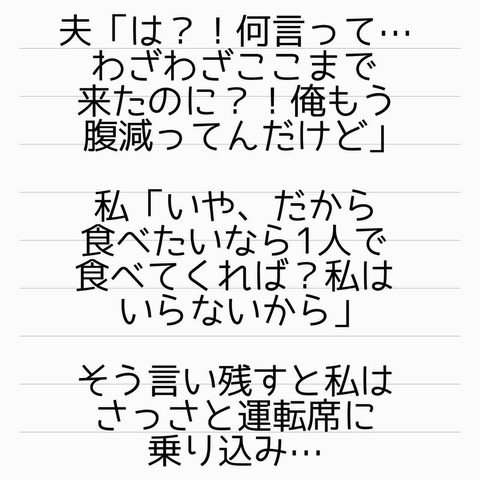 夫「は？！何言って…
わざわざここまで
来たのに？！俺もう
腹減ってんだけど」
私「いや、だから
食べたいなら1人で
食べてくれば？私は
いらないから」
そう言い残すと私は
さっさと運転席に
乗り込み…